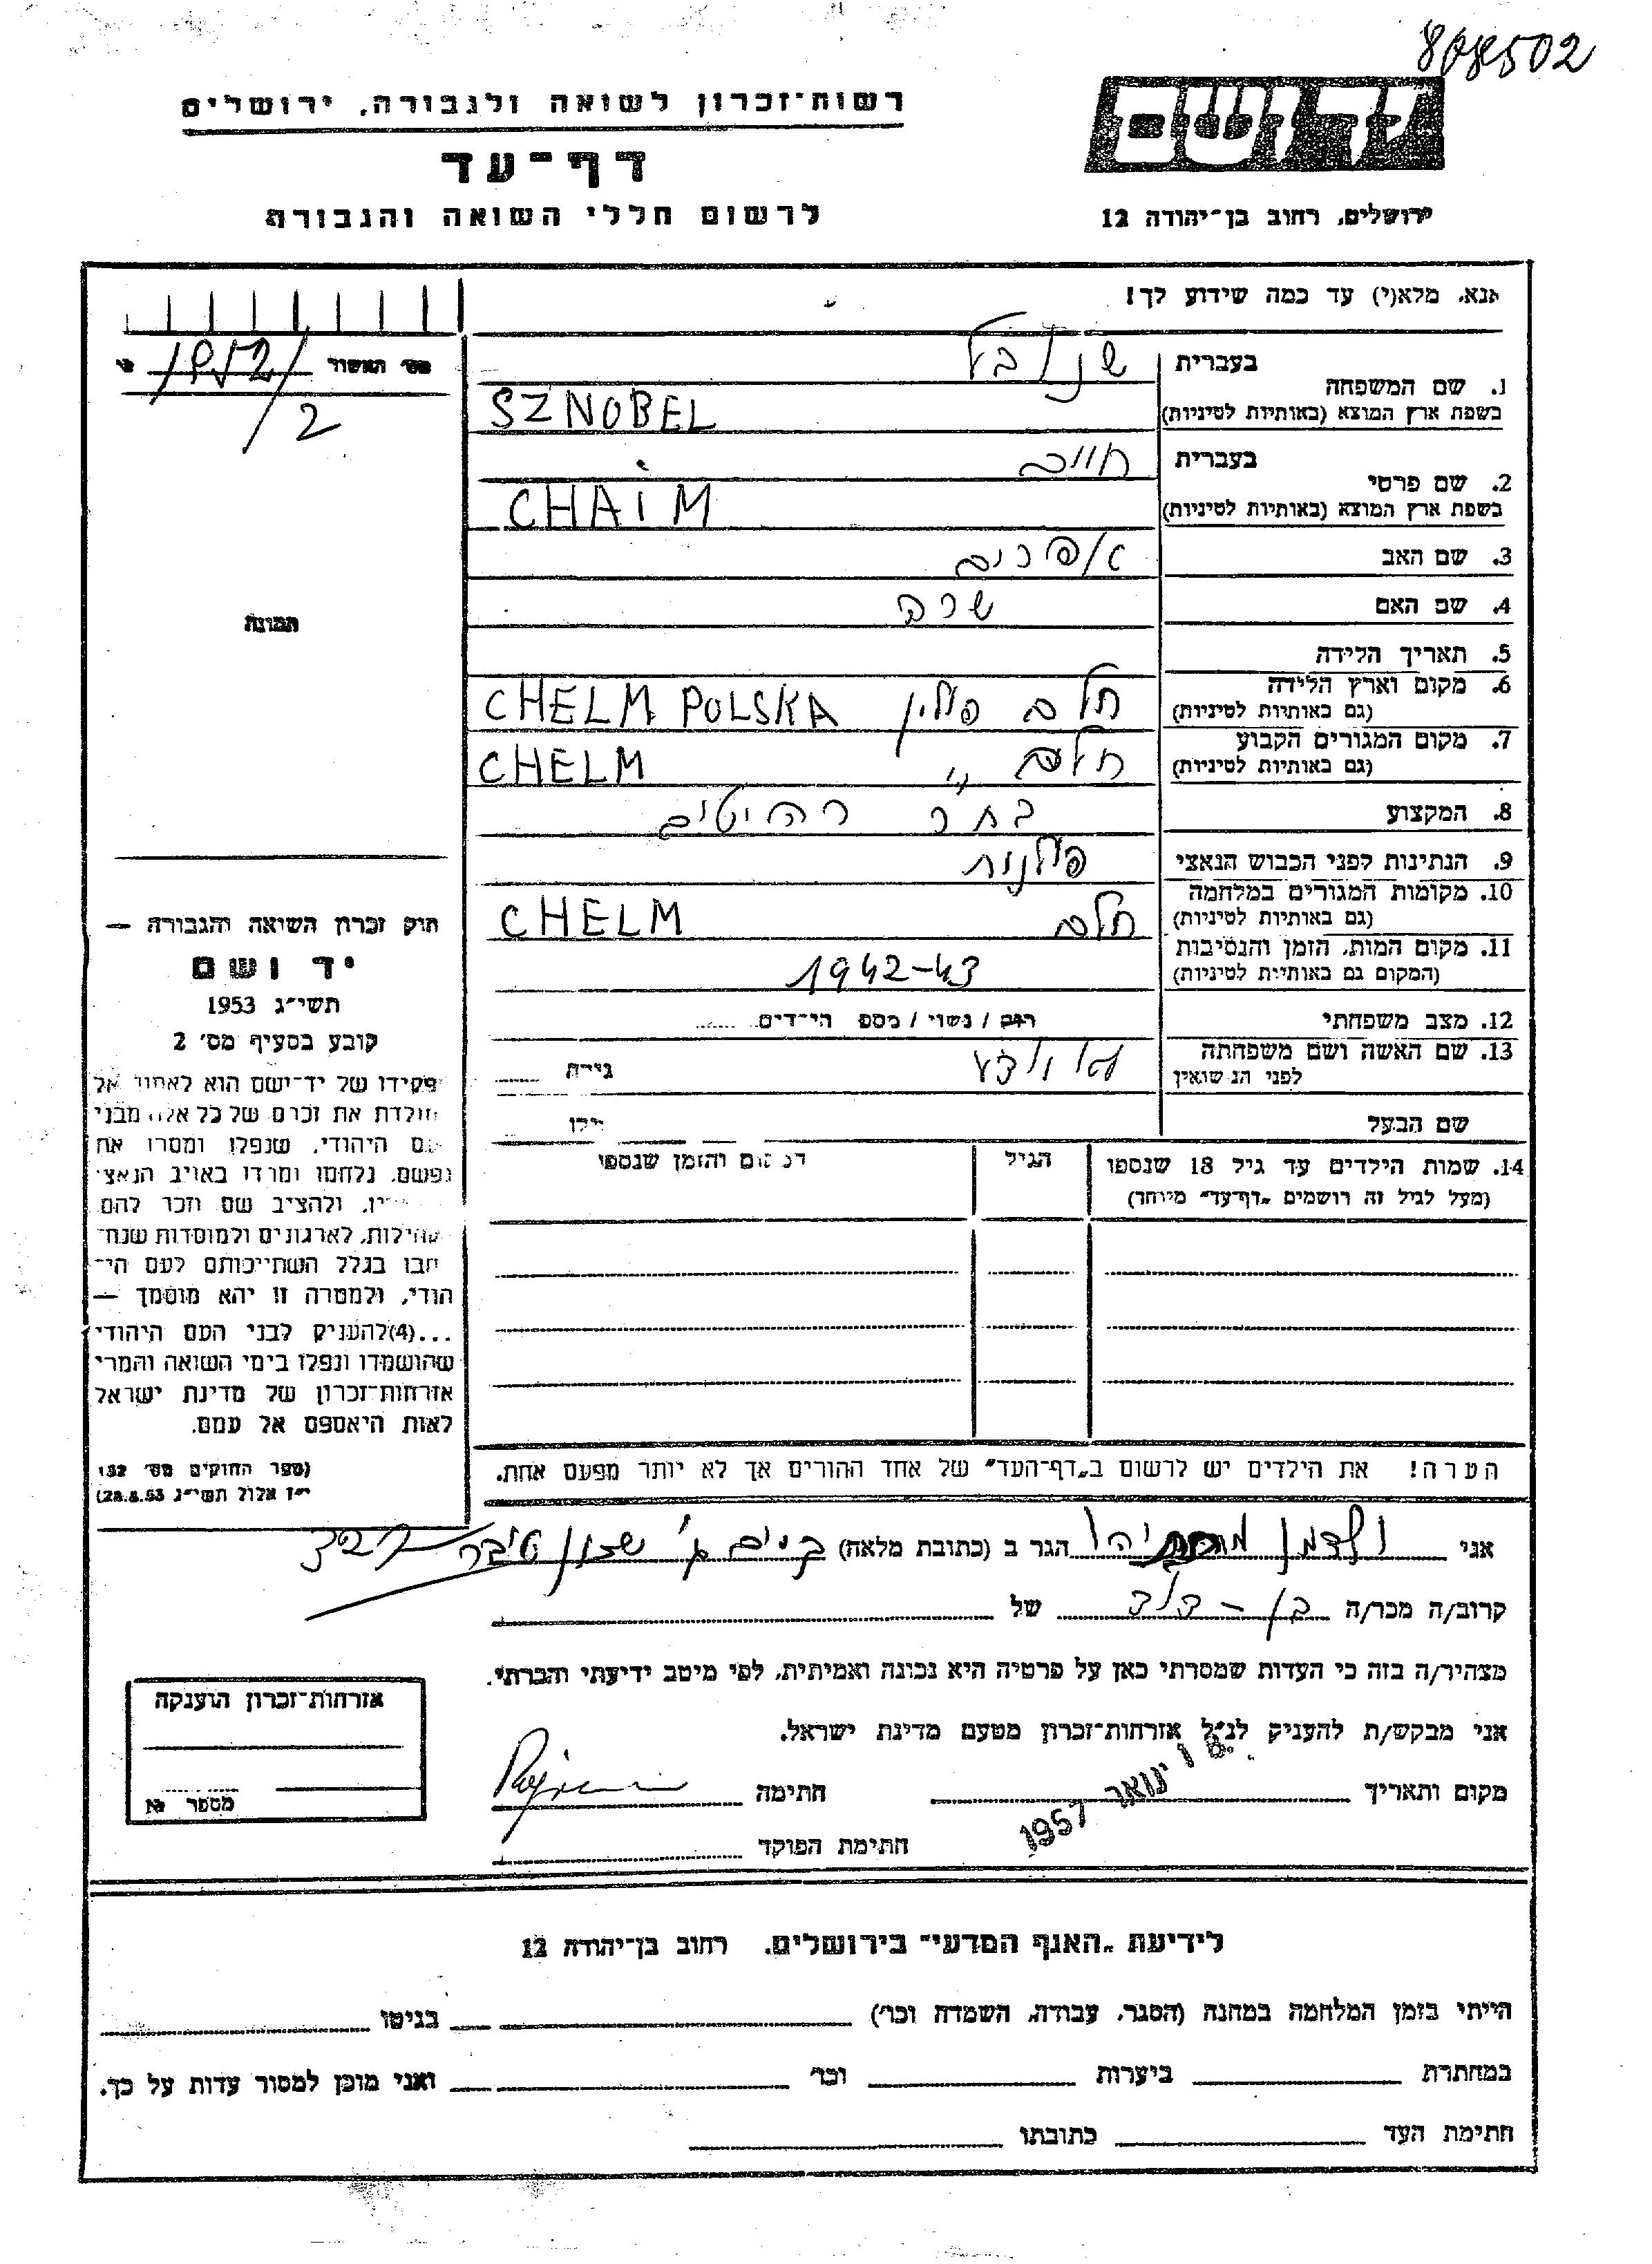 808502
ידושם
רשות־זכרון לשואה ולגבורה, ירושלים
דף־עד
לרשום חללי השואה והגבורה
ירושלים, רחוב בן־יהודה 12
אנא, מלא(י) עד כמה שידוע לך!
מס׳ האשור
1952/
2
בעברית שנובל
1. שם המשפחה
בשפת ארץ המוצא (באותיות לטיניות) SZNOBEL
בעברית חיים
2. שם פרטי
בשפת ארץ המוצא (באותיות לטיניות) CHAIM
3. שם האב אפרים
4. שם האם שרה
5. תאריך הלידה
6. מקום וארץ הלידה
(גם באותיות לטיניות) חלם פולין CHELM POLSKA
7. מקום המגורים הקבוע
(גם באותיות לטיניות) חלם " CHELM
8. המקצוע סחר רהיטים
9. הנתינות לפני הכבוש הנאצי פולנית
10. מקומות המגורים במלחמה
(גם באותיות לטיניות) חלם CHELM
11. מקום המות, הזמן והנסיבות
(המקום גם באותיות לטיניות) 1942-43
12. מצב משפחתי רווק / נשוי / מספ הי־דים
13. שם האשה ושם משפחתה
לפני הנשואין גילה
שם הבעל גילו
14. שמות הילדים עד גיל 18 שנספו
(מעל לגיל זה רושמים „דף־עד״ מיוחד)
הגיל
המקום והזמן שנספו
הערה! את הילדים יש לרשום ב„דף־העד״ של אחד ההורים אך לא יותר מפעם אחת.
תמונה
חוק זכרון השואה והגבורה —
יד ושם
תשי״ג 1953
קובע בסעיף מס׳ 2
תפקידו של יד־ושם הוא לאסוף אל
מולדת את זכרם של כל אלה מבני
העם היהודי, שנפלו ומסרו את
נפשם, נלחמו ומרדו באויב הנאצי
ולהציב שם וזכר להם
לקהילות, לארגונים ולמוסדות שנח־
רבו בגלל השתייכותם לעם הי־
הודי, ולמטרה זו יהא מוסמך —
...(4)להעניק לבני העם היהודי
שהושמדו ונפלו בימי השואה והמרי
אזרחות־זכרון של מדינת ישראל
לאות היאספם אל עמם.
(ספר החוקים מס׳ 132
י״ז אלול תשי״ג 28.8.53)
אני ולדמן מתתיהו הגר ב (כתובת מלאה)
קרוב/ה מכר/ה בן-דוד של
מצהיר/ה בזה כי העדות שמסרתי כאן על פרטיה היא נכונה ואמיתית, לפי מיטב ידיעתי והכרתי.
אני מבקש/ת להעניק לנ״ל אזרחות־זכרון מטעם מדינת ישראל.
מקום ותאריך ינואר 1957 חתימה
חתימת הפוקד
אזרחות־זכרון הוענקה
מספר
לידיעת „האגף המדעי״ בירושלים, רחוב בן־יהודה 12
הייתי בזמן המלחמה במחנה (הסגר, עבודה, השמדה וכו׳) בגיטו
במחתרת ביערות וכו׳ ואני מוכן למסור עדות על כך.
חתימת העד כתובתו